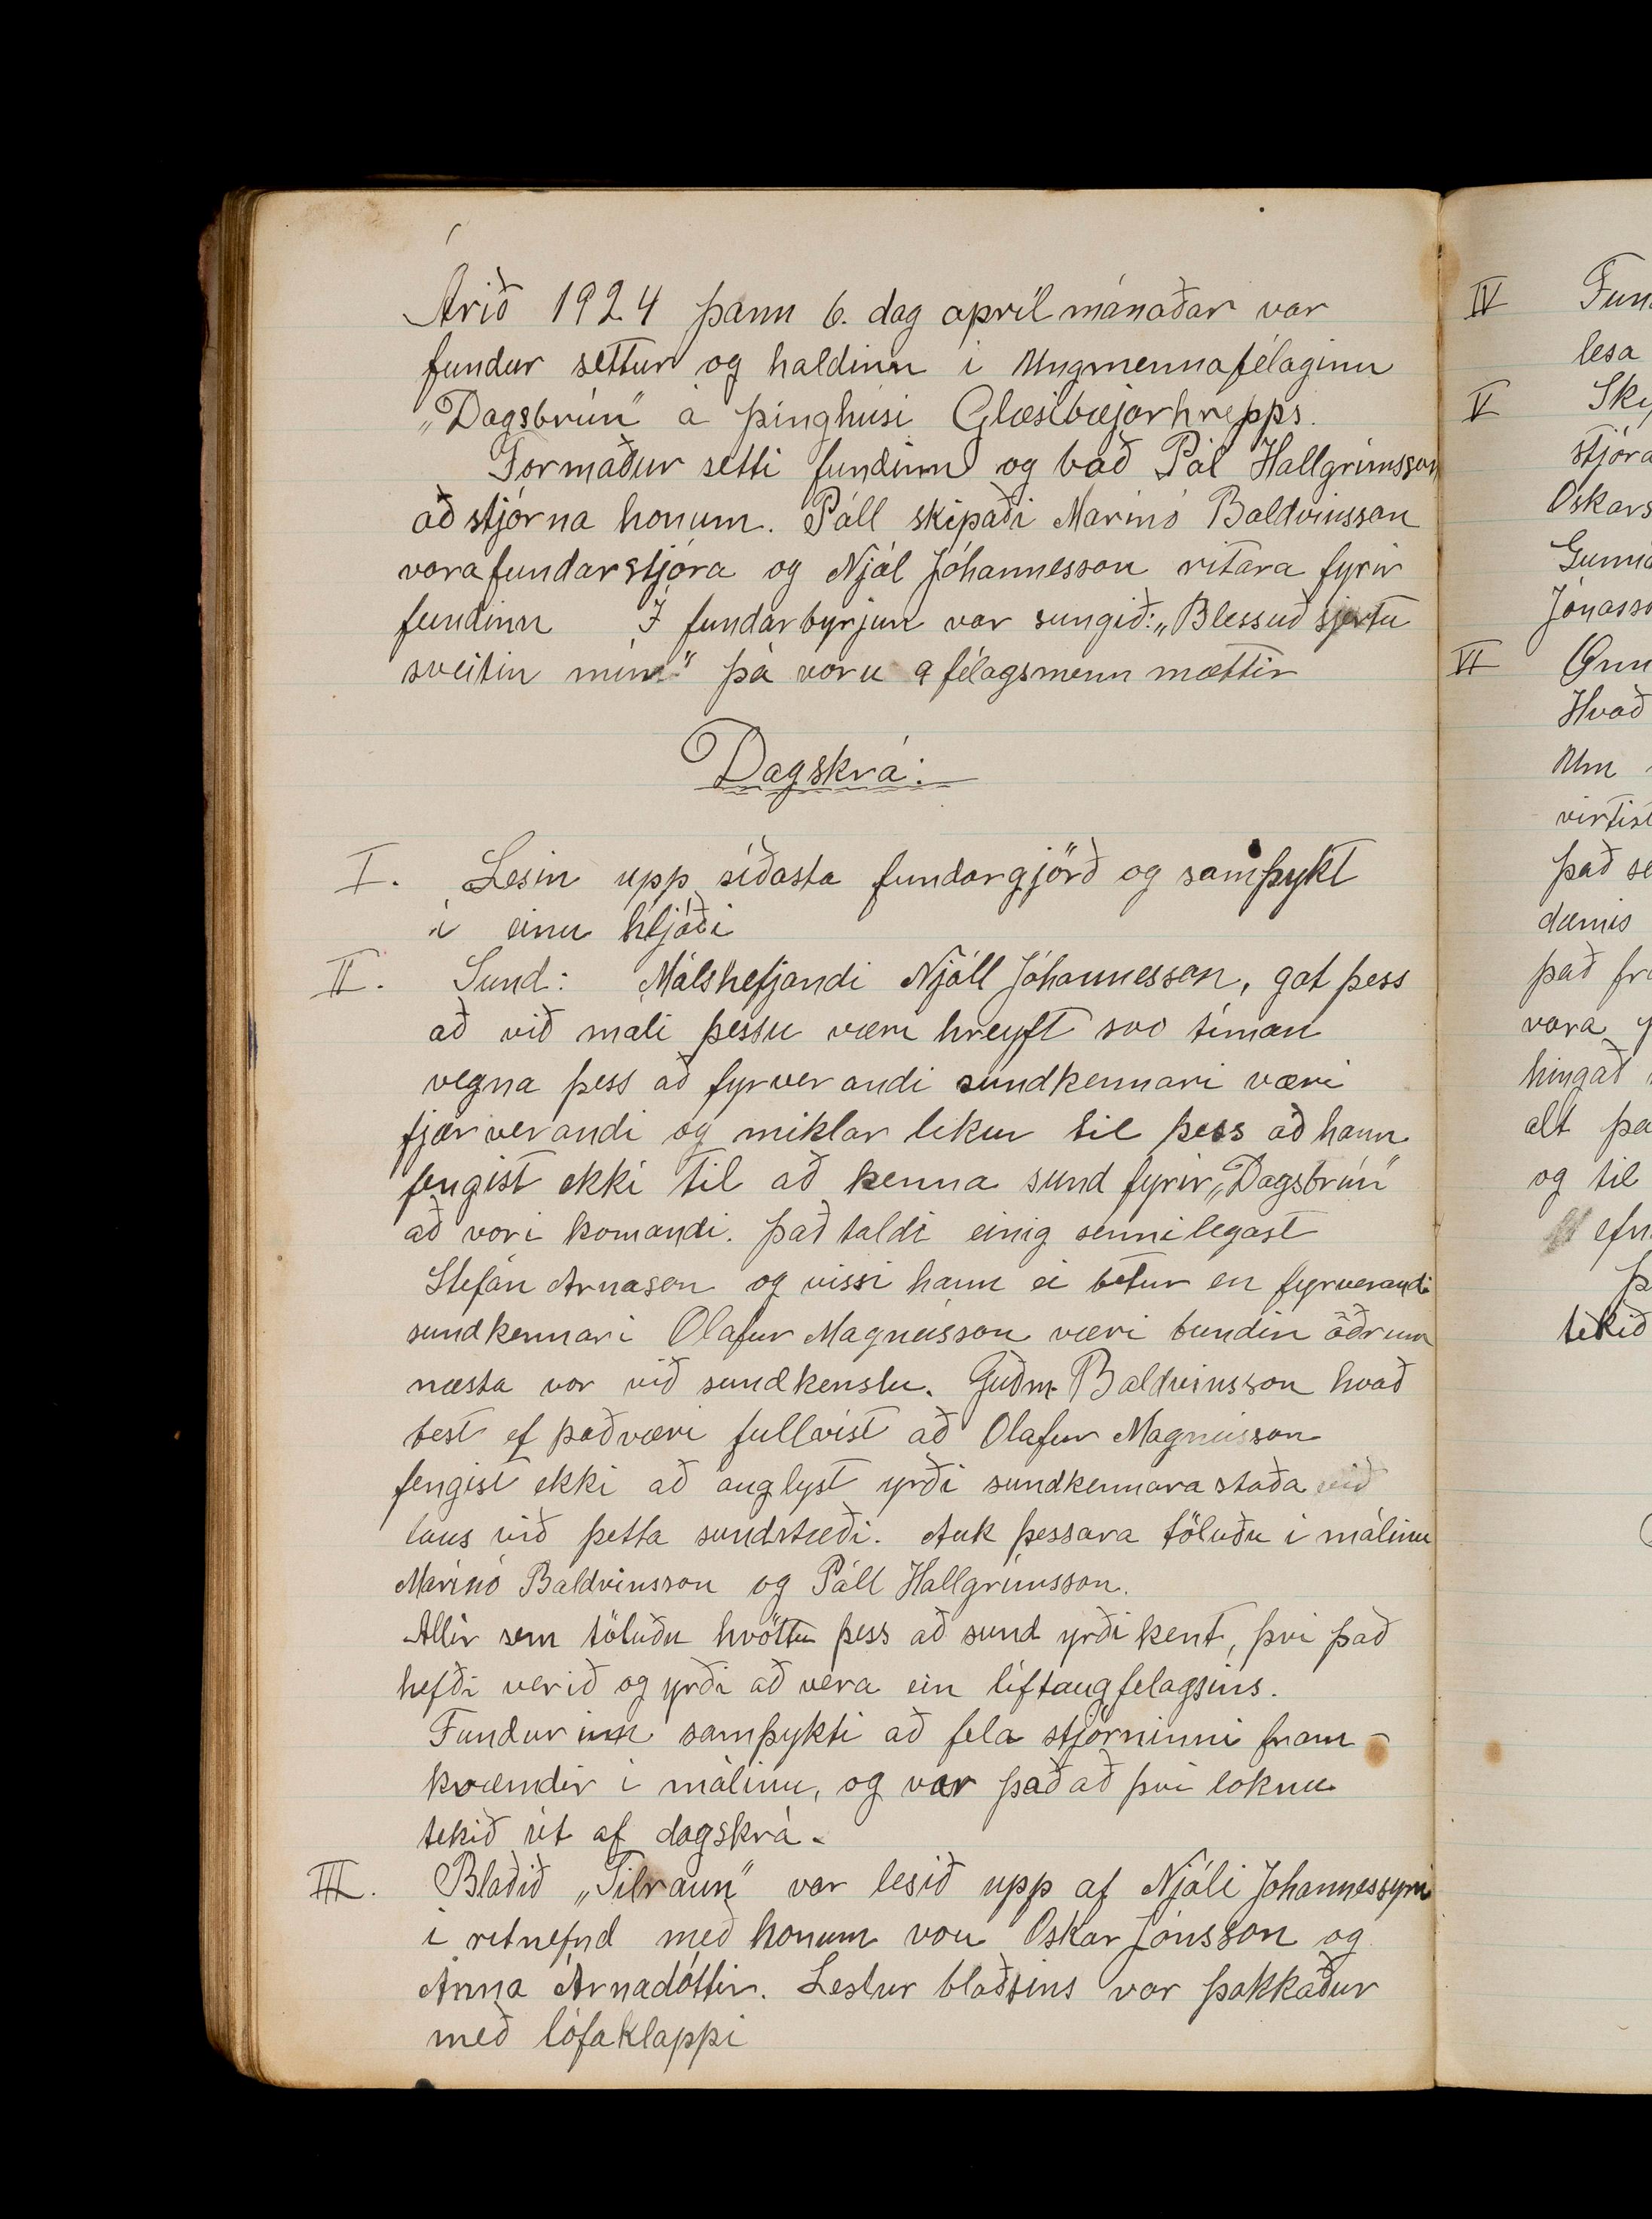 Árið 1924 þann 6. dag aprílmánaðar var
fundur settur og haldinn í Ungmennafélaginu
„Dagsbrún" á þinghúsi Glæsibæjarhrepps.
Formaður setti fundinn og bað Pál Hallgrímsson
að stjórna honum. Páll skipaði Marinó Baldvinsson
varafundarstjóra og Njál Jóhannesson ritara fyrir
fundinn Í fundarbyrjun var sungið: „Blessuð sjertu
sveitin mín" þá voru 9 félagsmenn mættir
Dagskrá:
I. Lesin upp síðasta fundargjörð og samþykt
í einu hljóði
II. Sund: Málshefjandi Njáll Jóhannesson, gat þess
að við mali þessu væri hreyft svo tíman
vegna þess að fyrverandi sundkennari væri
fjærverandi og miklar likur til þess að hann
fengist ekki til að kenna sund fyrir „Dagsbrún"
að vori komandi. Það taldi einig sennilegast
Stefán Arnason og vissi hann ei betur en fyrverandi
sundkennari Olafur Magnússon væri bundin öðrum
næsta vor við sundkenslu. Guðm. Baldvinsson kvað
best ef það væri fullvíst að Olafur Magnússon
fengist ekki að auglyst yrði sundkennara staða við
laus við þetta sundstæði. Auk þessara töluðu i málinu
Marínó Baldvinsson og Páll Hallgrímsson.
Allir sem töluðu hvöttu þess að sund yrði kent, því það
hefði verið og yrði að vera ein líftaug felagsins.
Fundurinn samþykti að fela stjórninni fram-
kvæmdir í málinu, og var það að því loknu
tekið út af dagskrá.
III. Blaðið „Tilraun" var lesið upp af Njáli Johannessyni
í ritnefnd með honum vou Oskar Jónsson og
Anna Árnadóttir. Lestur blaðsins var þakkaður
með lófaklappi
IV
lesa
V
stjóra
Oskars
VI
Hvað
Um
virtist
það se
dæmis
það fra
vara
hingað
alt þa
og til
efn
tekið